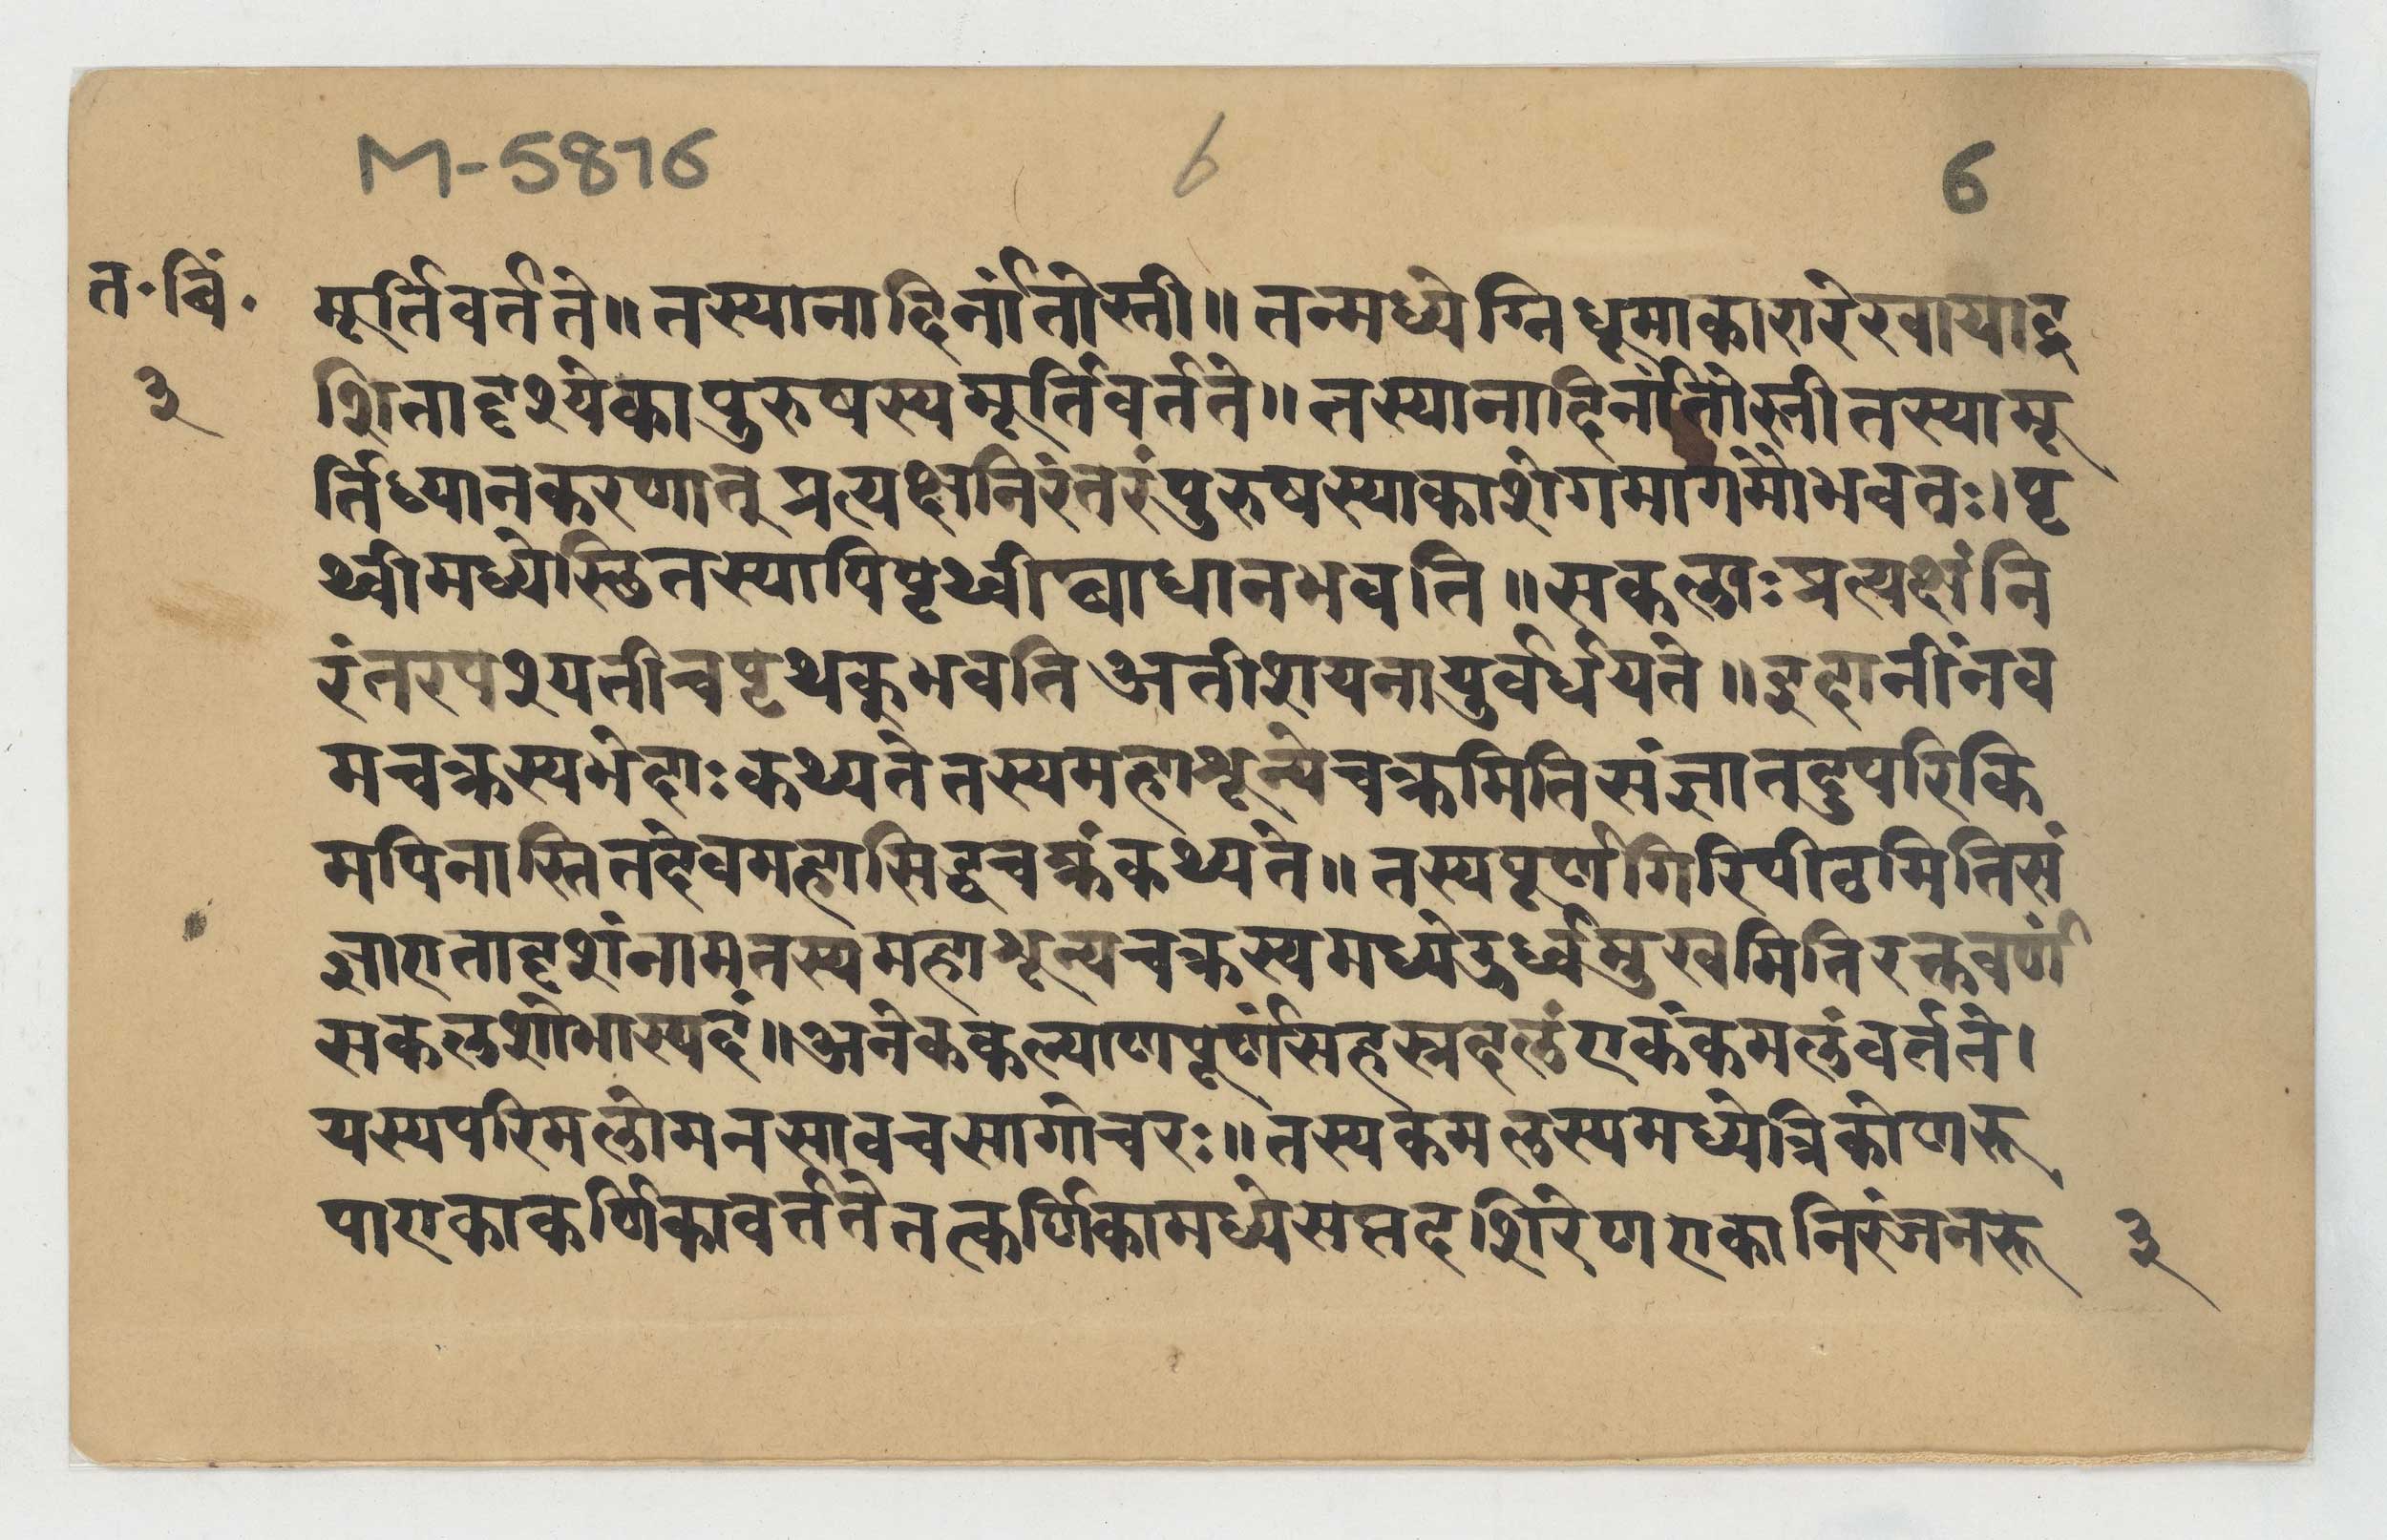 M-5876 6 6
त॰ बिं॰
३
मूर्तिवर्तते॥ तस्यानादिर्नांतोस्ती॥ तन्मध्येग्निधूमाकारारेखायादृ
शितादृश्येकापुरुषस्यमूर्तिवर्तते॥ तस्यानादिर्नांतोस्तीतस्यामू
र्तिध्यानकरणात् प्रत्यक्षनिरंतरंपुरुषस्याकाशेगमागमोभवतः। पृ
थ्वीमध्येस्तितस्यापिपृथ्वीबाधानभवति॥ सकलाः प्रत्यक्षंनि
रंतरपश्यतीचपृथक्भवति अतीशयनायुर्वर्धयते॥ इदानींनव
मचक्रस्यभेदाः कथ्यतेतस्यमहाशून्येचक्रमितिसंज्ञातदुपरिकि
मपिनास्तितदेवमहासिद्धचक्रंकथ्यते॥ तस्यपूर्णगिरिपीठमितिसं
ज्ञाएतादृशंनामतस्यमहाशून्यचक्रस्यमध्येउर्ध्वमुखमितिरक्तवर्णं
सकलशोभास्पदं॥ अनेककल्याणपूर्णंसहस्त्रदलंएकंकमलंवर्तते।
यस्यपरिमलोमनसावचसागोचरः॥ तस्यकमलस्यमध्येत्रिकोणरू
पाएकाकर्णिकावर्ततेतत्कर्णिकामध्येसप्तदशिरेणएकानिरंजनरू
३